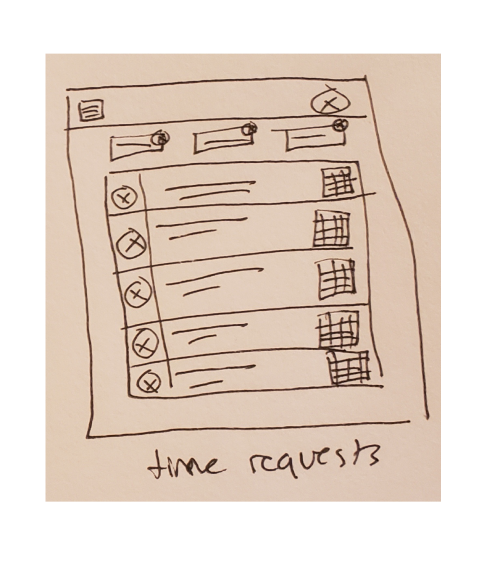 time requests